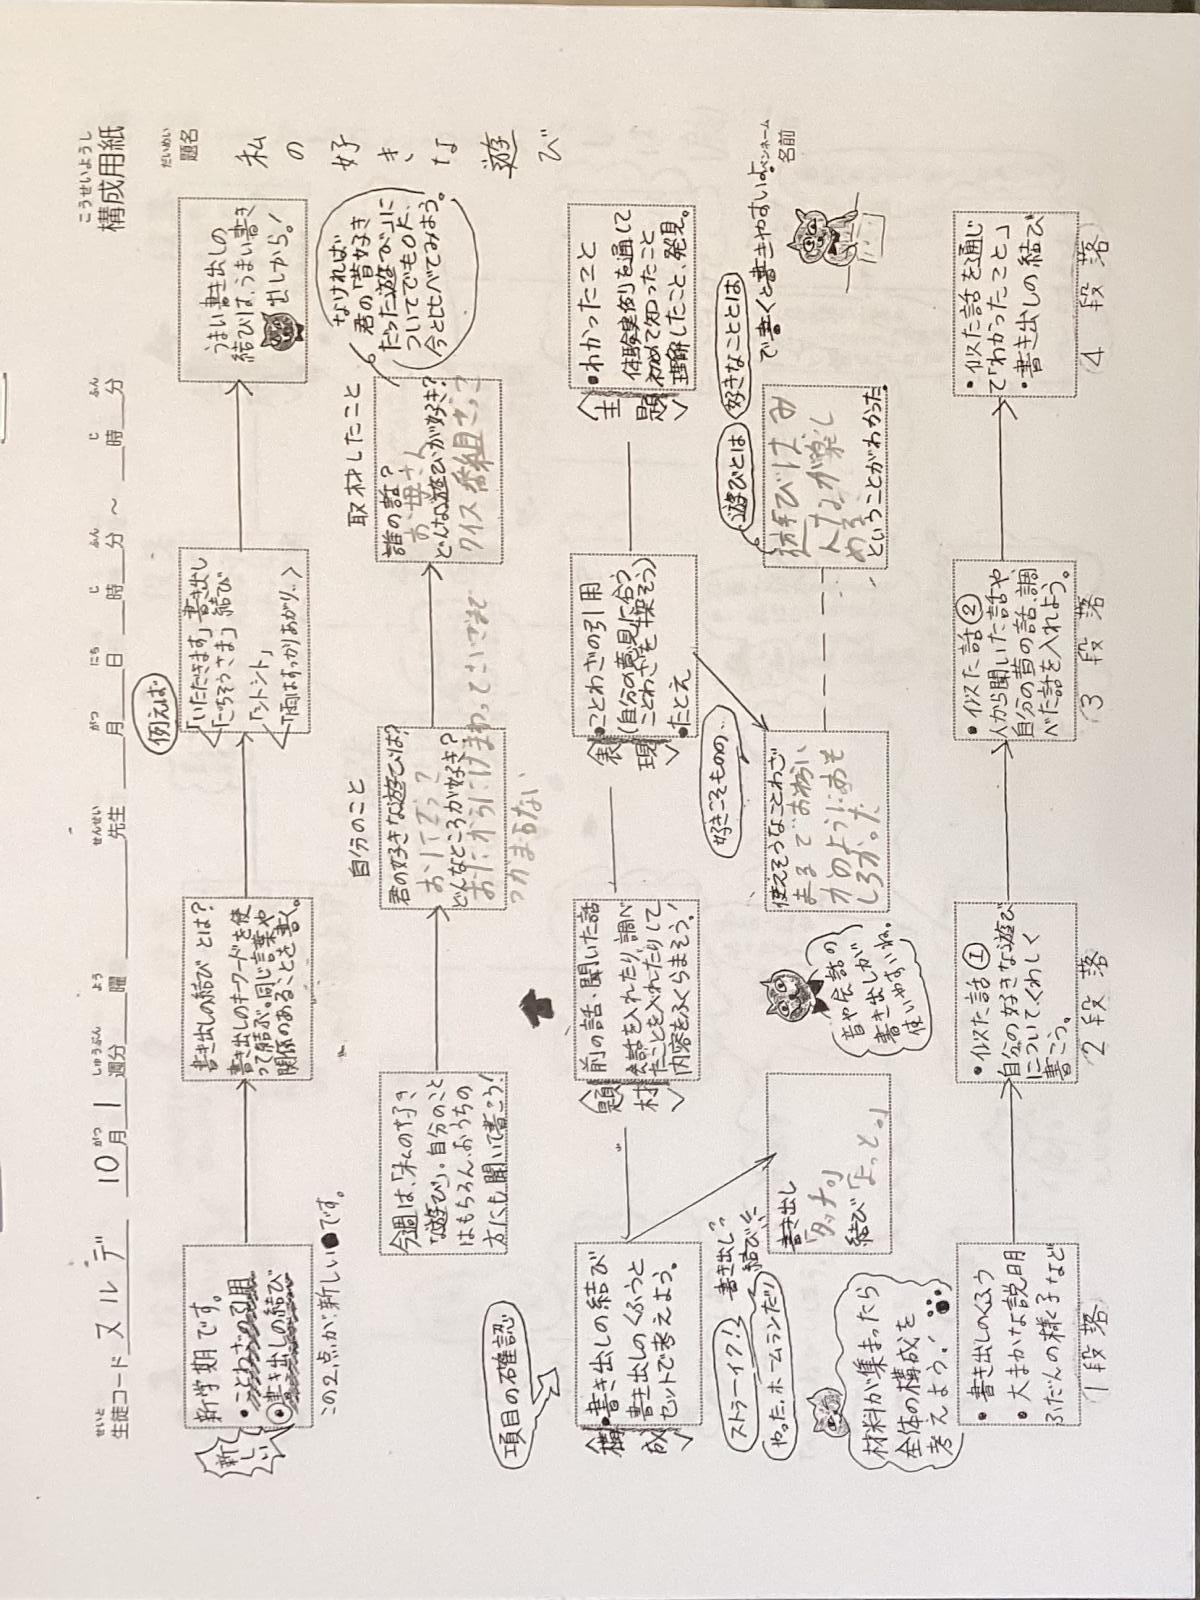 構成用紙
こうせいようし
生徒コード ヌルデ 10月1週分 曜 先生 月 日 時 分 ～ 時 分
せいと がつ しゅうぶん よう せんせい がつ にち じ ふん じ ふん
題名
だいめい
私の好きな遊び
新しい
新学期です。
・ことわざの引用
◎書き出しの結び
この2点が新しい●です。
書き出しの結びとは？
書き出しのキーワードを使
って結ぶ。同じ言葉や
関係のあることを書く。
例えば
「いただきます」書き出し
「ごちそうさま」結び
「シトシト」
「雨はすっかりあがり‥
うまい書き出しの
結びは、うまい書き
出しから。！
今週は、「私の好き
な遊び」。自分のこと
はもちろん、おうちの
方にも聞いて書こう！
自分のこと
君の好きな遊びは？
おりてごっこ
どんなところが好き？
おにからにげまわっていざれで
つかまらない
取材したこと
誰の話？
お母さん
どんな遊びが好き？
クイズ番組ごっこ
なければ
君の「昔好き
だった遊び」に
ついてでもOK、
今と比べてみよう。
項目の確認
構成
・書き出しの結び
書き出しのくふうと
セットで考えよう。
題材
前の話・聞いた話
会話を入れたり、調べ
たことを入れたりして
内容をふくらまそう！
表現
・ことわざの引用
（自分の意見に合う
ことわざを探そう）
・たとえ
主題
・わかったこと
体験実例を通して
初めて知ったこと
理解したこと、発見。
ストラーイク！！
書き出し
やった、ホームランだ！
結び
書き出し
「タッチ。」
結び「よっと。」
昔や会話の
書き出しが
使いやすいね。
好きこそものの‥
使えそうなことわざ
まるでお笑い
のようにおも
しろかった
遊びとは
好きなこととは
で書くと書きやすいよ。
遊びはみ
んなが楽し
める
ということがわかった。
ペンネーム
名前
材料が集まったら
全体の構成を
考えよう！
・書き出しのくふう
・大まかな説明
ふだんの様子など
1段落
・似た話①
自分の好きな遊び
についてくわしく
書こう。
2段落
・似た話②
人から聞いた話や
自分の昔の話、調
べた話を入れよう。
3段落
・似た話を通じ
て「わかったこと」
・書き出しの結び
4段落